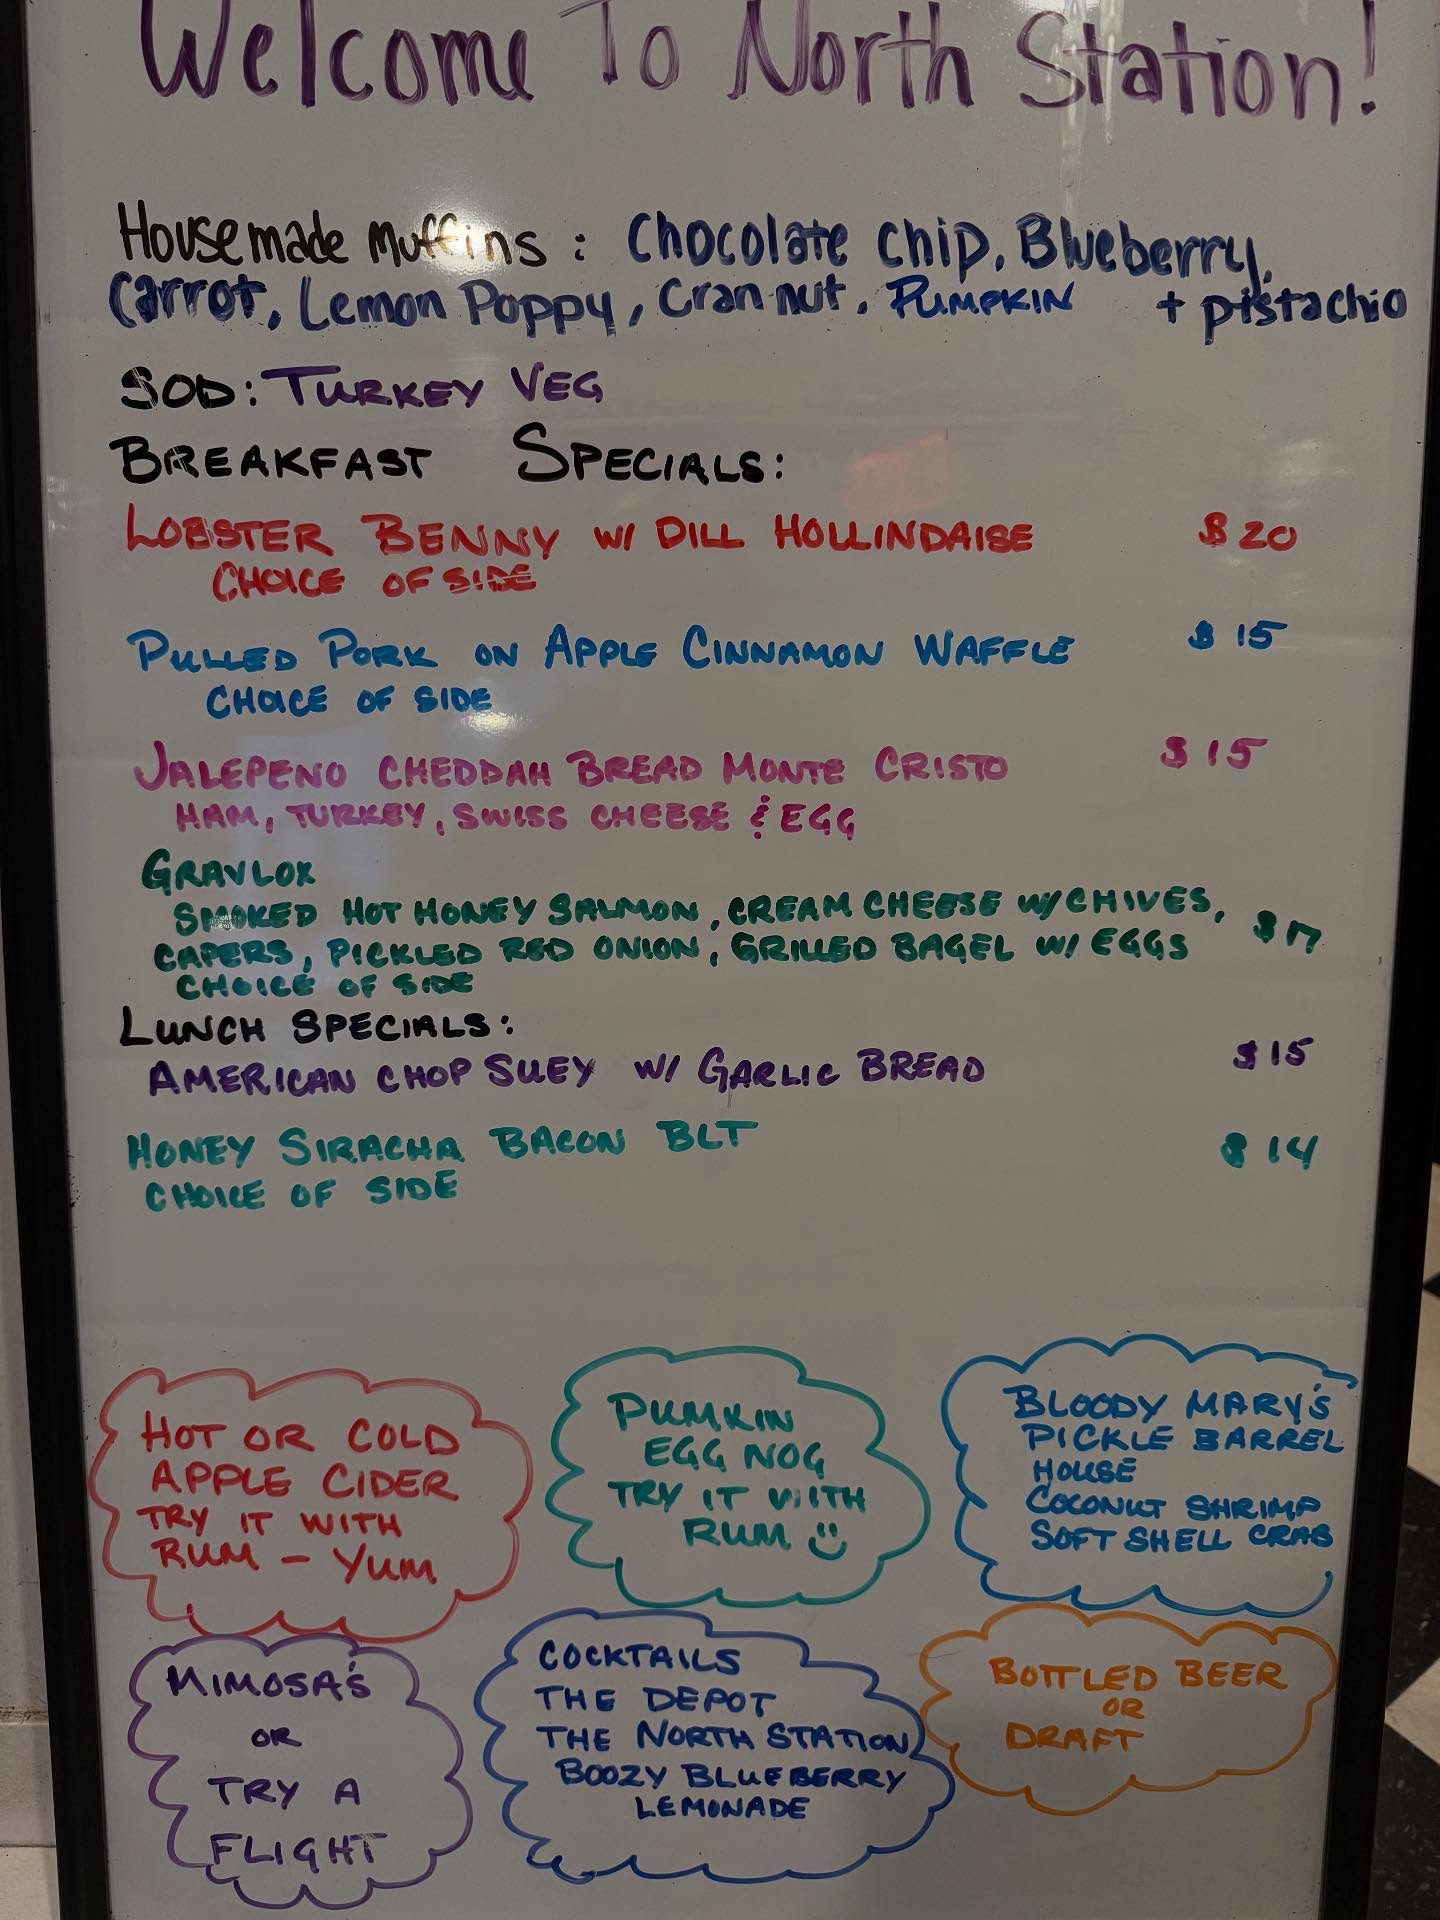 Welcome To North Station!
Housemade Muffins: Chocolate Chip, Blueberry,
Carrot, Lemon Poppy, Cran-nut, PUMPKIN + pistachio
SOD: TURKEY VEG
BREAKFAST SPECIALS:
LOBSTER BENNY W/ DILL HOLLINDAISE $20
CHOICE OF SIDE
PULLED PORK ON APPLE CINNAMON WAFFLE $15
CHOICE OF SIDE
JALEPENO CHEDDAH BREAD MONTE CRISTO $15
HAM, TURKEY, SWISS CHEESE & EGG
GRAVLOX
SMOKED HOT HONEY SALMON, CREAM CHEESE W/ CHIVES,
CAPERS, PICKLED RED ONION, GRILLED BAGEL W/ EGGS $17
CHOICE OF SIDE
LUNCH SPECIALS:
AMERICAN CHOP SUEY W/ GARLIC BREAD $15
HONEY SIRACHA BACON BLT $14
CHOICE OF SIDE
HOT OR COLD
APPLE CIDER
TRY IT WITH
RUM - YUM
PUMKIN
EGG NOG
TRY IT WITH
RUM
BLOODY MARY'S
PICKLE BARREL
HOUSE
COCONUT SHRIMP
SOFT SHELL CRAB
MIMOSA'S
OR
TRY A
FLIGHT
COCKTAILS
THE DEPOT
THE NORTH STATION
BOOZY BLUEBERRY
LEMONADE
BOTTLED BEER
OR
DRAFT